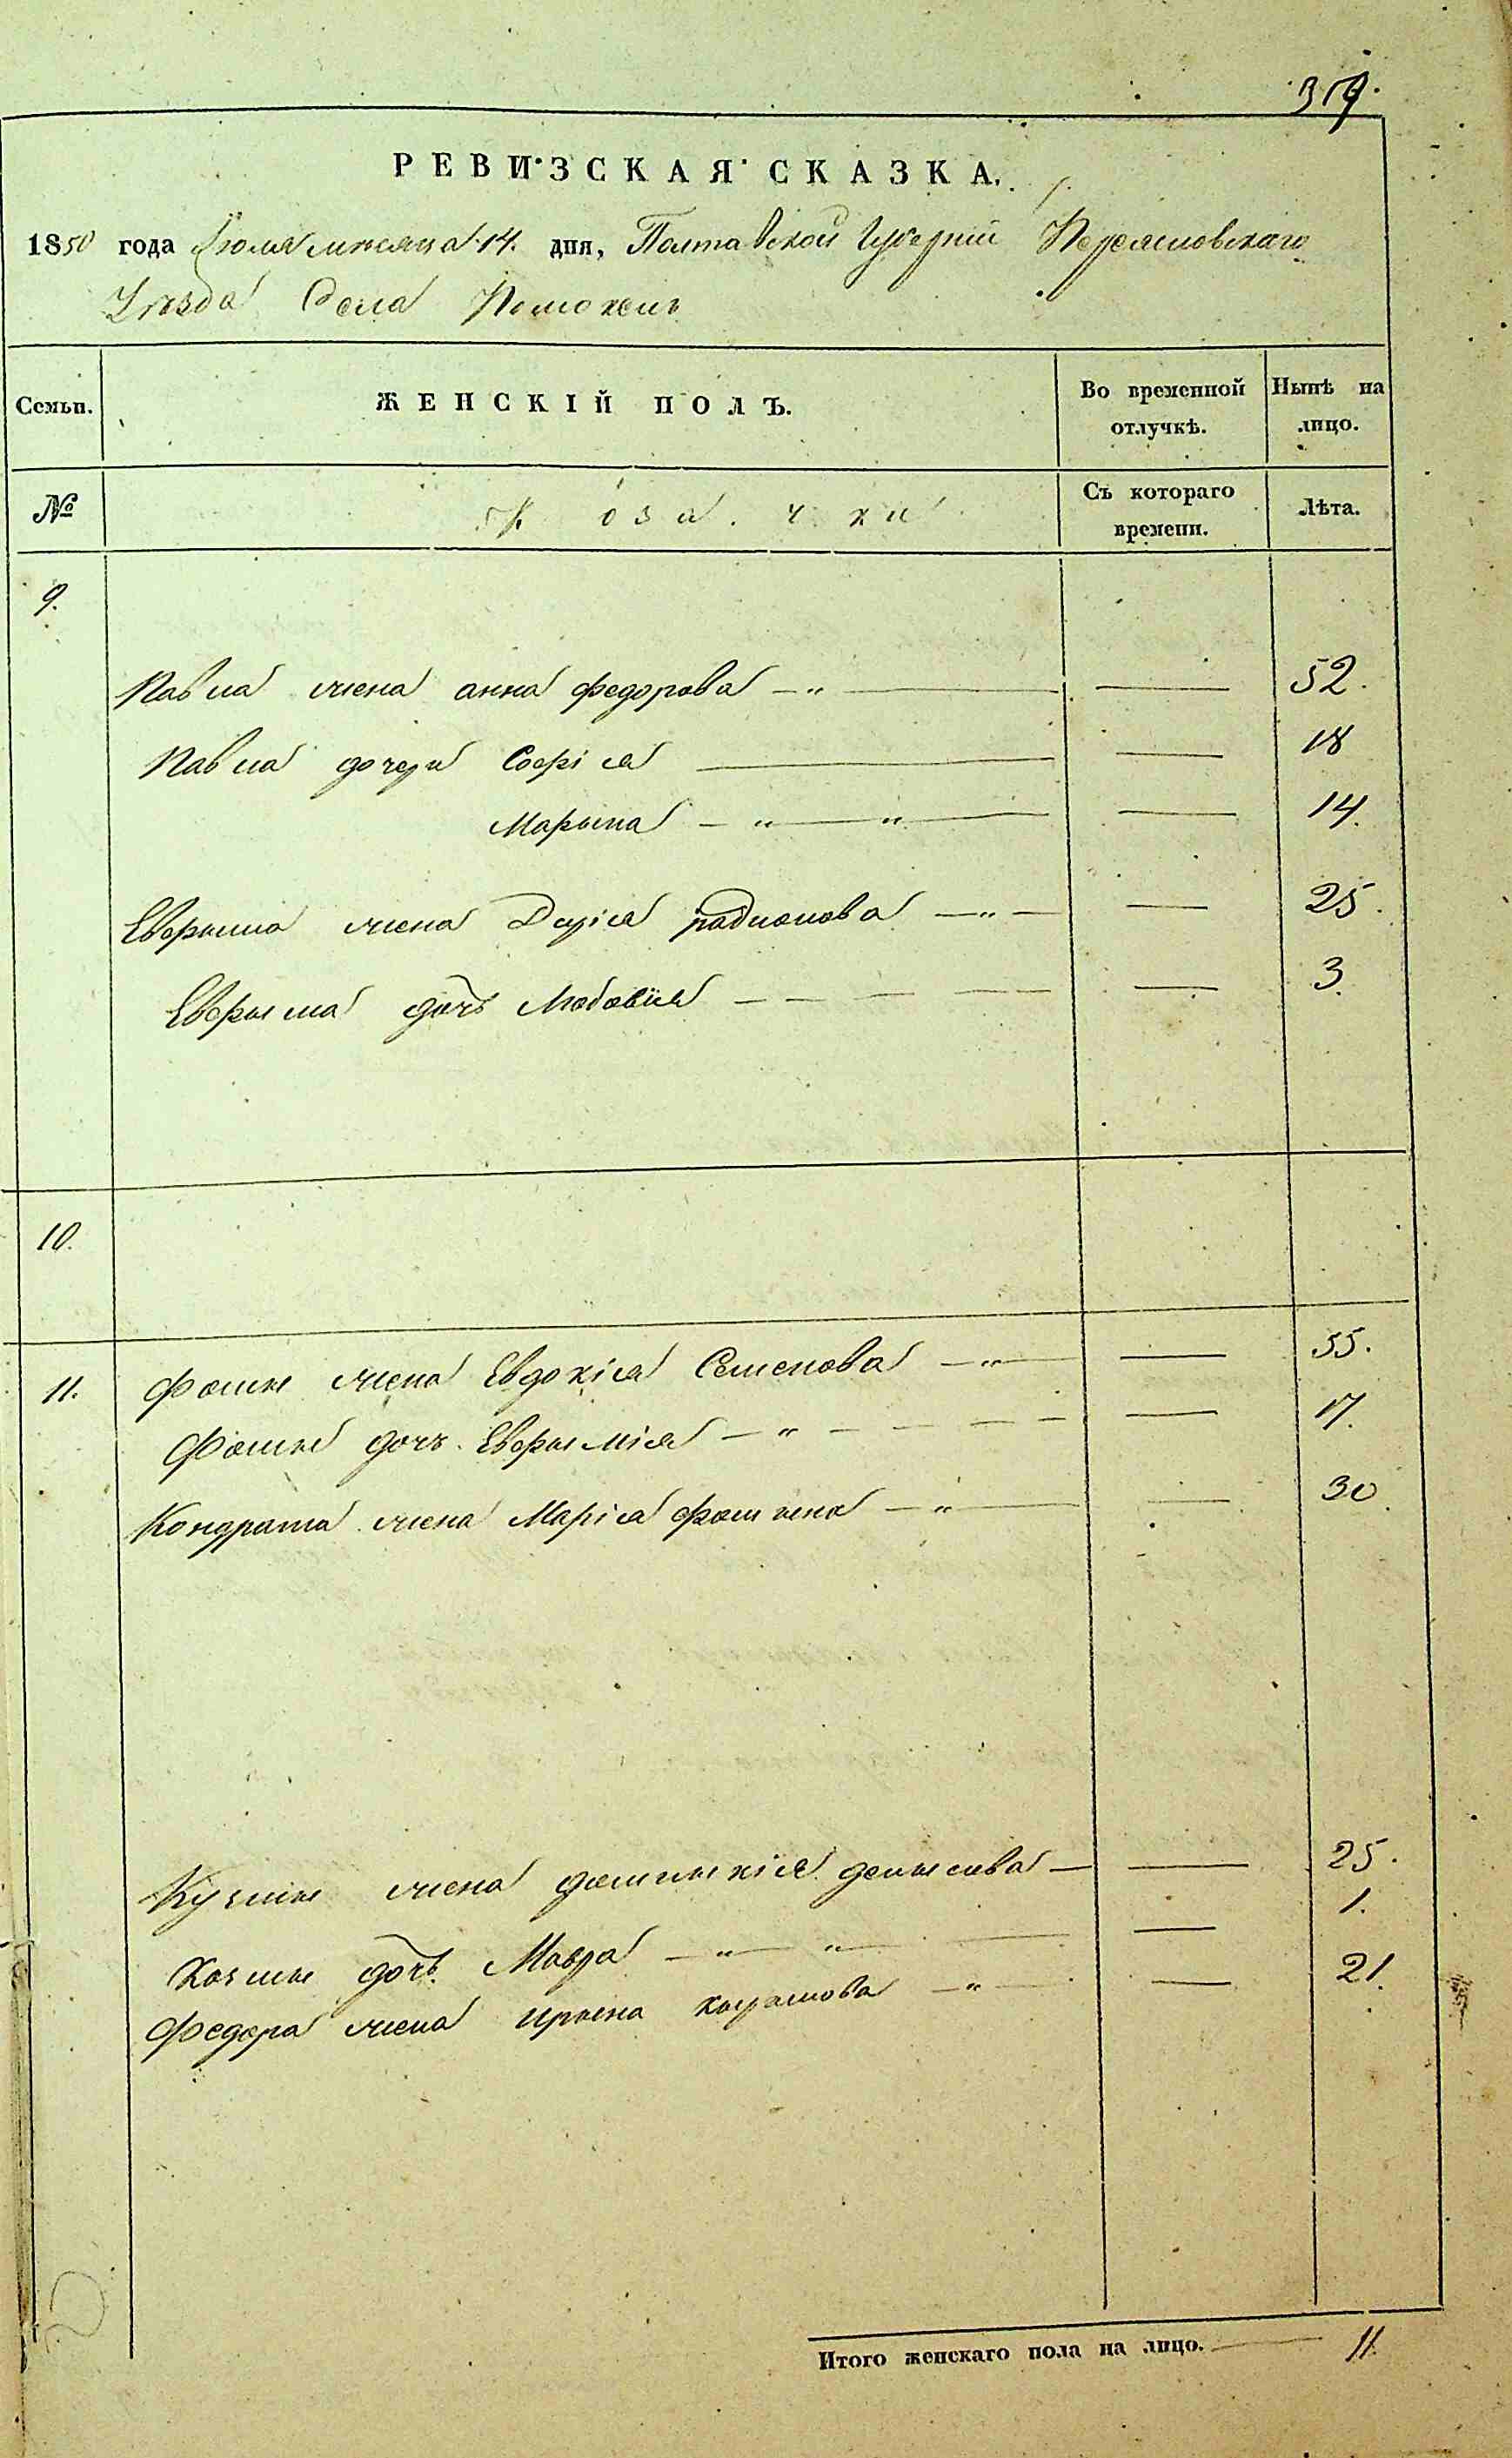 319.
РЕВИЗСКАЯ СКАЗКА.
1850 года Июля месяца 14. дня, Полтавской Губерніи Переяславскаго
Уезда Села Помоклей
Семьи. ЖЕНСКІЙ ПОЛЪ. Во временной отлучкѣ. Нынѣ на лицо.
№ Козачки Съ котораго времени. Лѣта.
9.
Павла жена анна федорова — " — — 52.
Павла дочери Софія — — 18
Марына — " — " — — 14.
Евфыма жена Дарія радионова — " — — 25.
Евфыма дочъ Любовія — — — — — 3.
10.
11. Фомы жена Евдокія Семенова — " — — 55.
Фомы дочъ Евфымія — " — — — — — 17.
Кондрата жена Марія фомина — " — — 30.
Кузмы жена домникія денысова — — 25.
Козмы дочъ Мавра — " — " — — 1.
Федора жена ирына — " — — 21.
Итого женскаго пола на лицо. — 11.